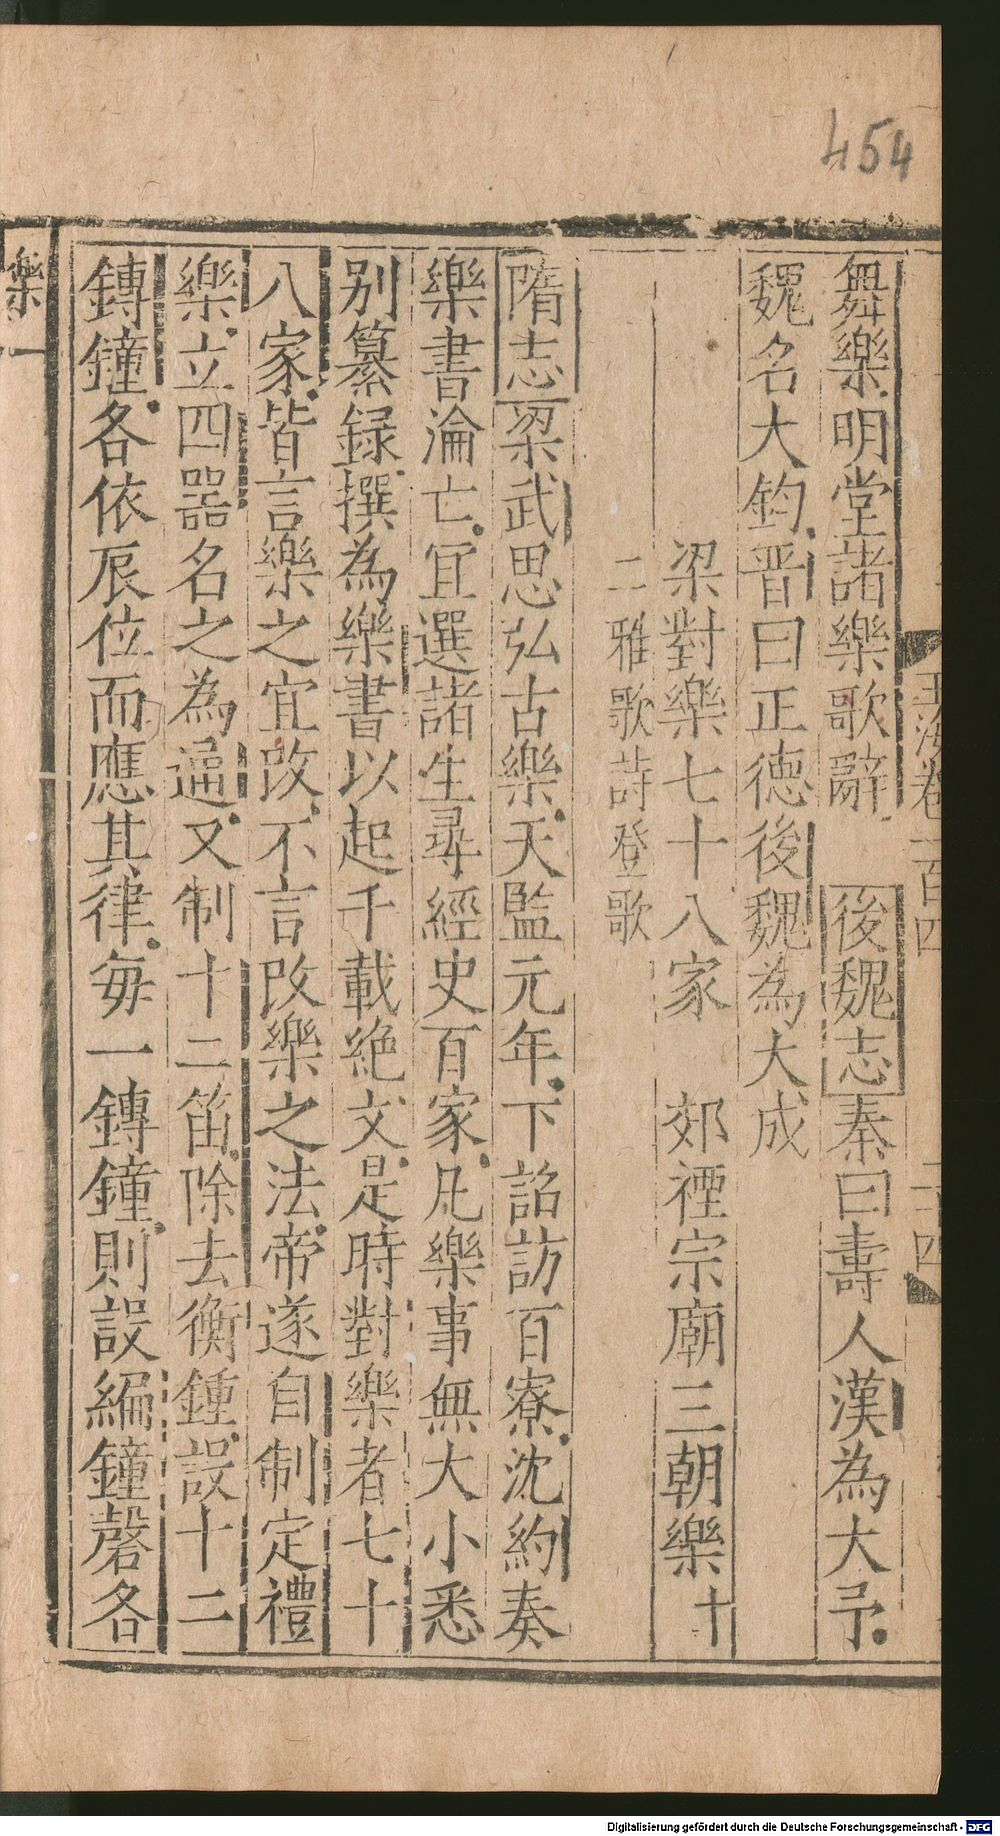 454
玉海卷一百四 二十四
舞樂明堂諸樂歌辭 後魏志秦曰壽人漢為大予
魏名大鈞晉曰正德後魏為大成
梁對樂七十八家 郊禋宗廟三朝樂十
二雅歌詩登歌
隋志梁武思弘古樂天監元年下詔訪百寮沈約奏
樂書淪亡宜選諸生尋經史百家凡樂事無大小悉
別纂録撰為樂書以起千載絶文是時對樂者七十
八家皆言樂之宜改不言改樂之法帝遂自制定禮
樂立四器名之為通又制十二笛除去衡鍾設十二
鎛鐘各依辰位而應其律毎一鎛鐘則設編鐘磬各
樂一
Digitalisierung gefördert durch die Deutsche Forschungsgemeinschaft - DFG